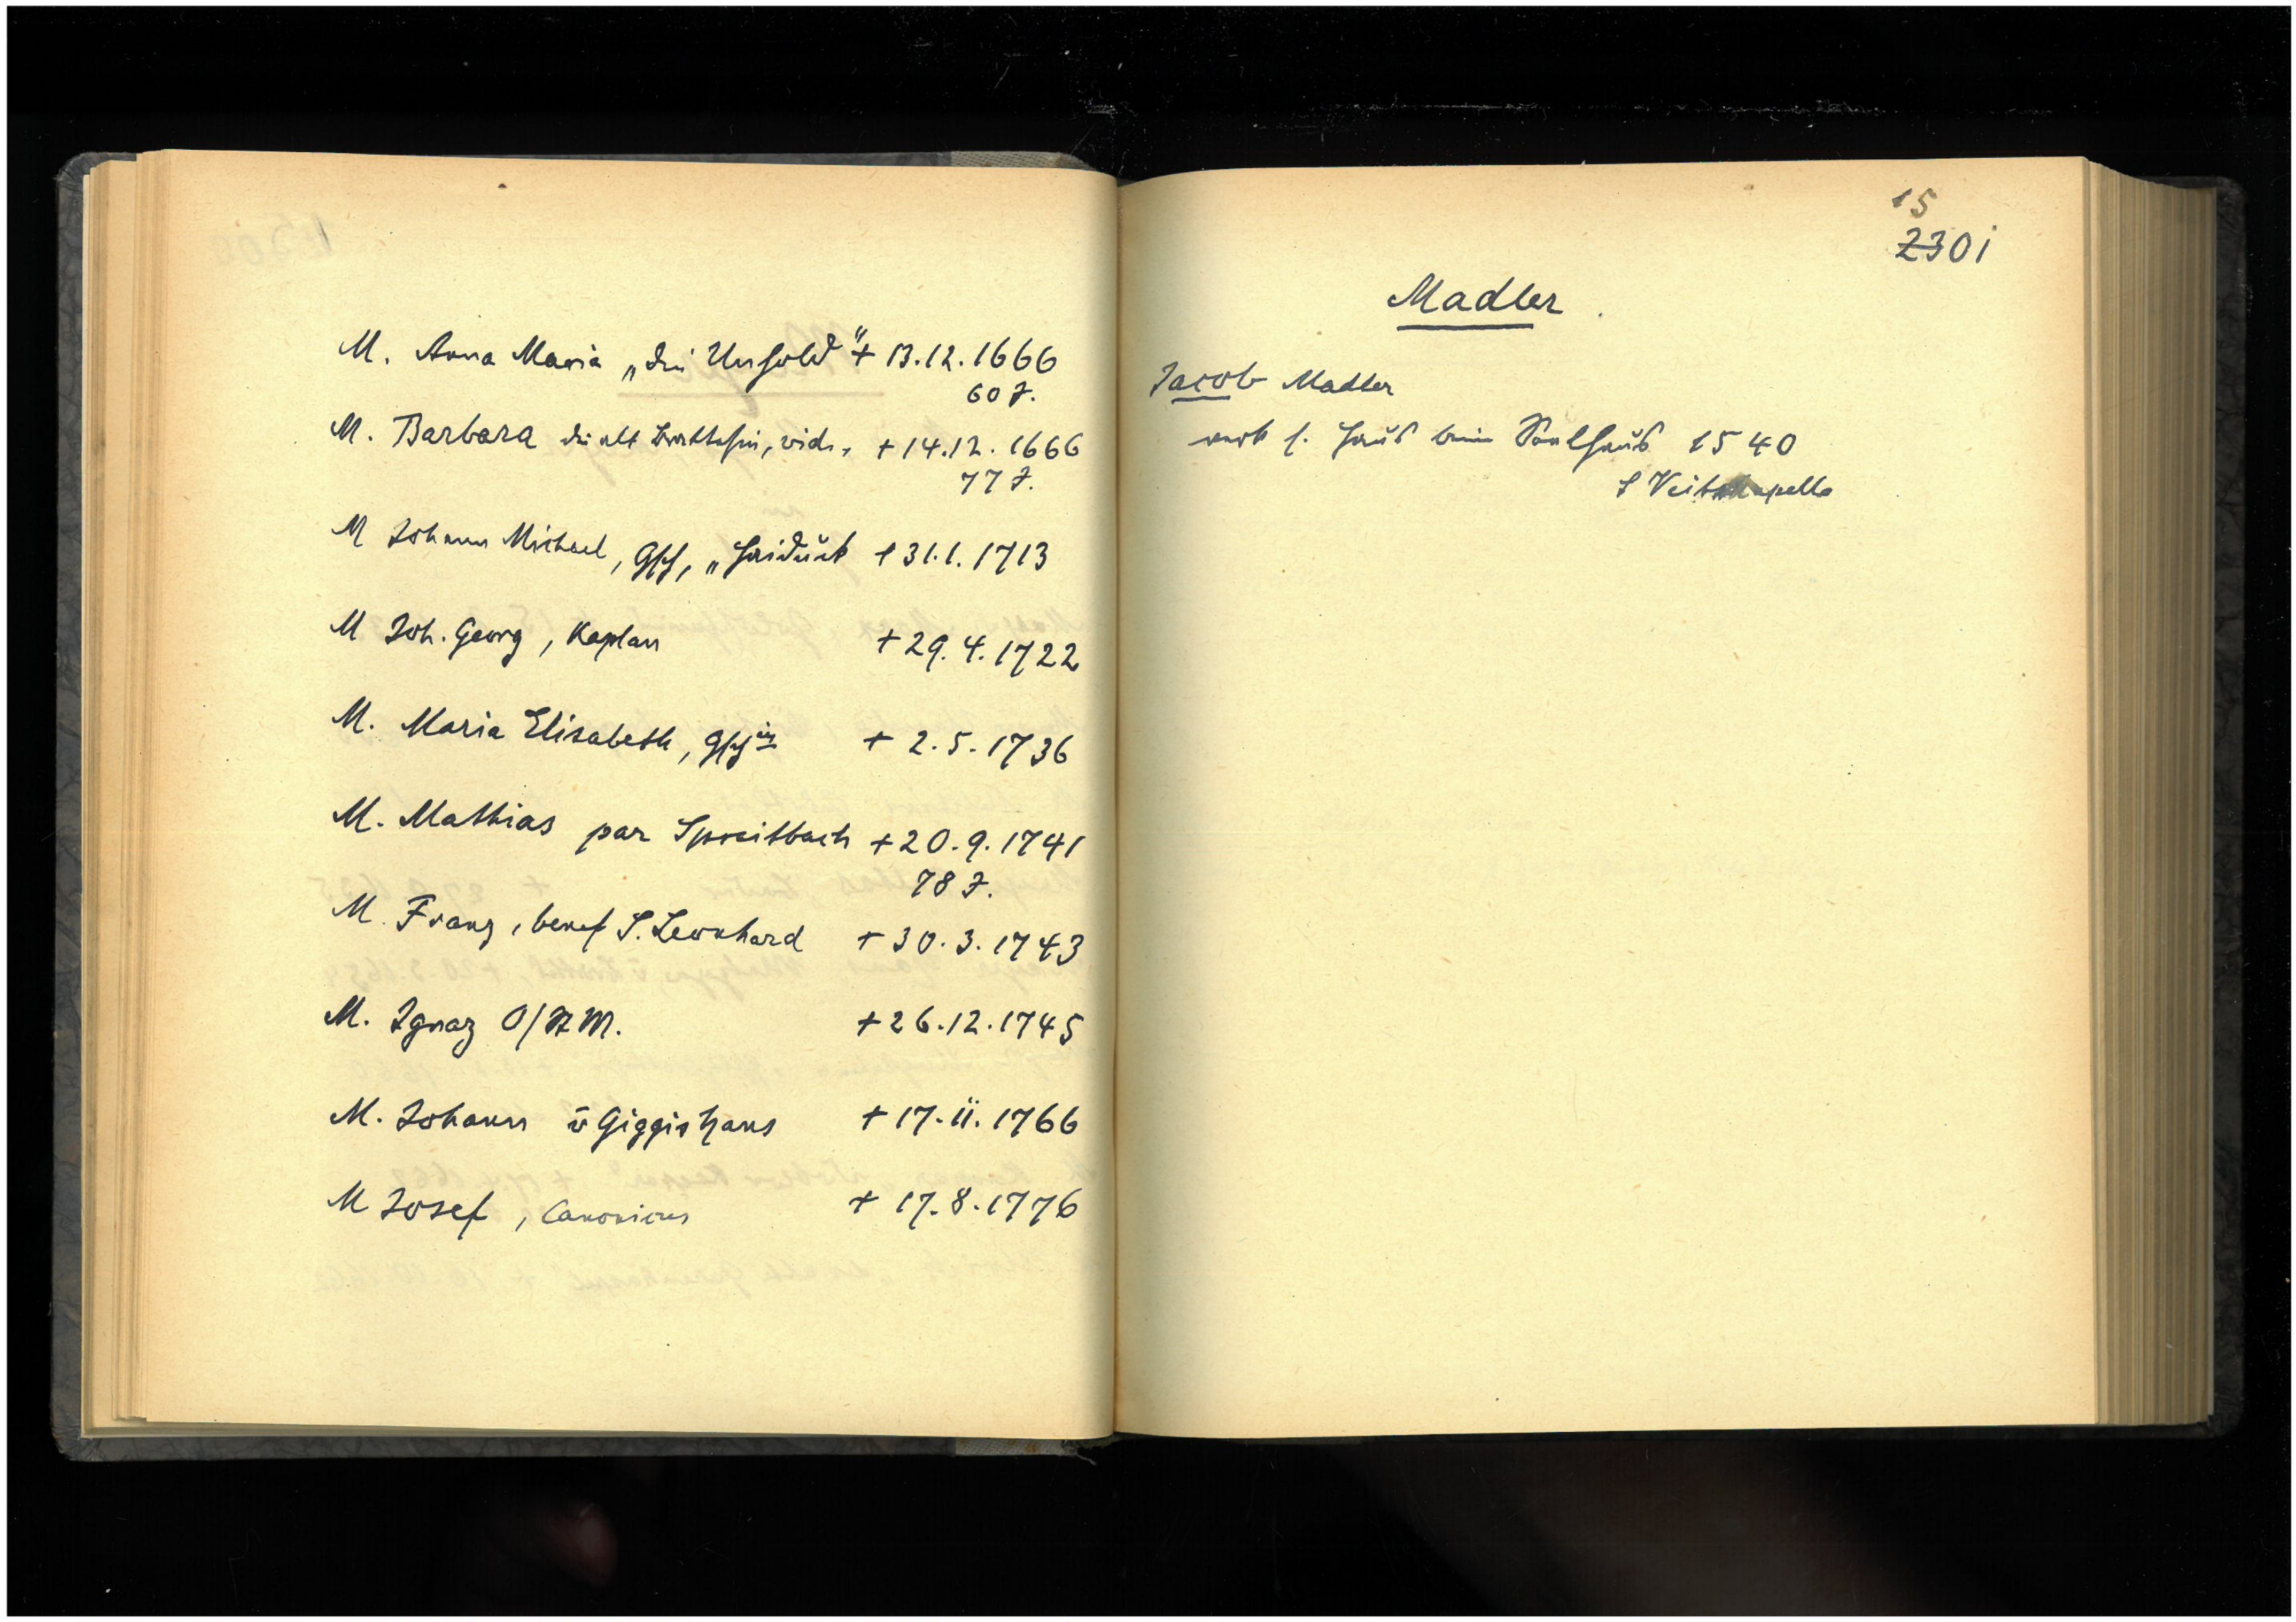 M. Anna Maria „die Unhold" + 13.12.1666
60 J.
M. Barbara die alt vid. + 14.12.1666
77 J.
M Johann Michael, Gsch, „Haiduck + 31.1.1713
M Joh. Georg, Kaplan + 29.4.1722
M. Maria Elisabeth, Gschin + 2.5.1736
M. Mathias par Spreitbach + 20.9.1741
78 J.
M. Franz, benef S. Leonhard + 30.3.1743
M. Ignaz O/St M. + 26.12.1745
M. Johann v Giggishans + 17.11.1766
M Josef, Canonicus + 17.8.1776
15
2301
Madler
Jacob Madler
verk s. Haus beim Seelhaus 1540
S Veitskapelle